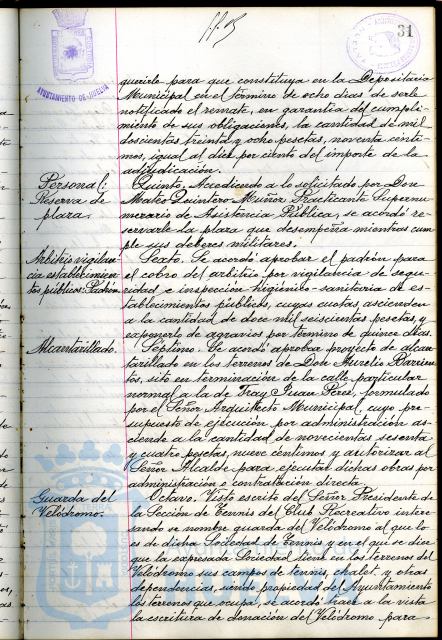 31
AYUNTAMIENTO DE HUELVA
querirle para que constituya en la Depositaria
Municipal en el término de ocho dias de serle
notificado el remate, en garantia del cumpli-
miento de sus obligaciones, la cantidad de mil
doscientas treinta y ocho pesetas, noventa cénti-
mos, igual al diez por ciento del importe de la
adjudicación.
Personal:
Reserva de
plaza.
Quinto. Accediendo a lo solicitado por Don
Mateo Quintero Muñoz Practicante Supernu-
merario de Asistencia Pública, se acordó re-
servarle la plaza que desempeña mientras cum-
ple sus deberes militares.
Arbitrio vigilan-
cia establecimien-
tos públicos: Padrón
Sexto. Se acordó aprobar el padrón para
el cobro del arbitrio por vigilancia de segu-
ridad e inspección higiénico-sanitaria de es-
tablecimientos públicos, cuyas cuotas ascienden
a la cantidad de doce mil seiscientas pesetas, y
exponerlo de agravios por término de quince dias.
Alcantarillado.
Séptimo. Se acordó aprobar proyecto de alcan-
tarillado en los terrenos de Don Aurelio Barrien-
tos, sito en terminación de la calle particular
normal a la de Fray Juan Pérez, formulado
por el Señor Arquitecto Municipal, cuyo pre-
supuesto de ejecución por administración as-
ciende a la cantidad de novecientas sesenta
y cuatro pesetas, nueve céntimos y autorizar al
Señor Alcalde para ejecutar dichas obras por
administración o contratación directa.
Guarda del
Velódromo.
Octavo. Visto escrito del Señor Presidente de
la Sección de Tennis del Club Recreativo intere-
sando se nombre guarda del Velódromo al que lo
es de dicha Sociedad de Tennis y en el que se dice
que la expresada Sociedad tiene en los terrenos del
Velódromo sus campos de tennis, chalet y otras
dependencias, siendo propiedad del Ayuntamiento
los terrenos que ocupa, se acordó traer a la vista
la escritura de donación del Velódromo para